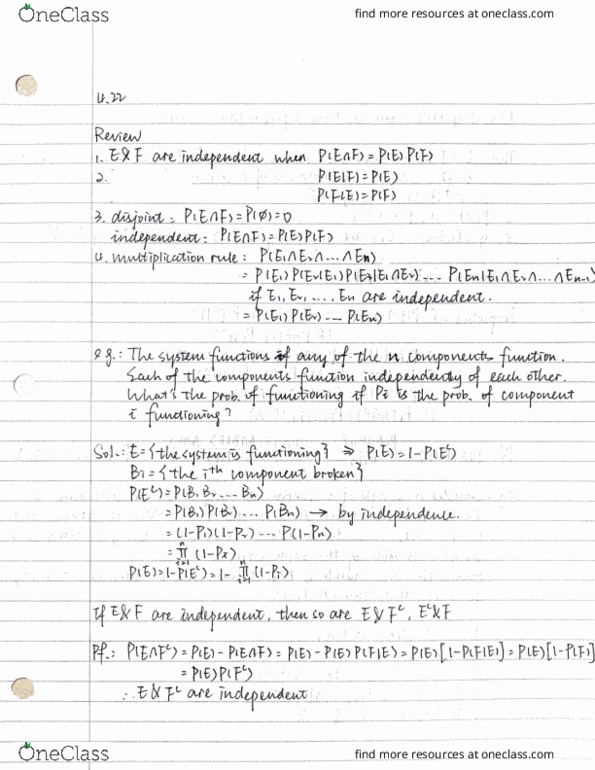 OneClass
find more resources at oneclass.com
4.22
Review
1. E&F are independent when P(E∩F)=P(E)P(F)
2. P(E|F)=P(E)
P(F|E)=P(F)
3. disjoint: P(E∩F)=P(∅)=0
independent: P(E∩F)=P(E)P(F)
4. multiplication rule: P(E₁∩E₂∩...∩En)
= P(E₁)P(E₂|E₁)P(E₃|E₁∩E₂)....P(En|E₁∩E₂∩...∩En-1)
if E₁, E₂, .... En are independent.
= P(E₁)P(E₂)...P(En)
eg.: The system functions if any of the n components function.
Each of the components function independenty of each other.
What's the prob. of functioning if Pi is the prob. of component
i functioning?
Sol.: E={the system is functioning} ⇒ P(E)=1-P(Eᶜ)
Bi={the iᵗʰ component broken}
P(Eᶜ)=P(B₁B₂...Bn)
=P(B₁)P(B₂)...P(Bn) → by independence.
=(1-P₁)(1-P₂)...P(1-Pn)
=∏ⁿᵢ₌₁(1-Pi)
P(E)=1-P(Eᶜ)=1-∏ⁿᵢ₌₁(1-Pi)
If E&F are independent, then so are E&Fᶜ, Eᶜ&F
Pf.: P(E∩Fᶜ)=P(E)-P(E∩F)=P(E)-P(E)P(F|E)=P(E)[1-P(F|E)]=P(E)[1-P(F)]
=P(E)P(Fᶜ)
∴E&Fᶜ are independent
OneClass
find more resources at oneclass.com